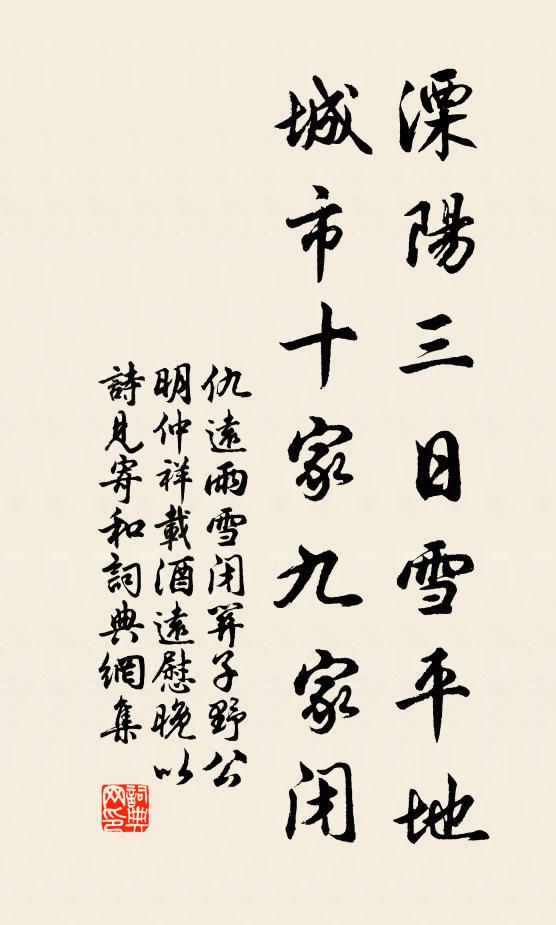 溧陽三日雪平地
城市十家九家閉
仇遠雨雪閉關子野公
明仲祥載酒遠慰晚以
詩見寄和詞典網集
詞典網印